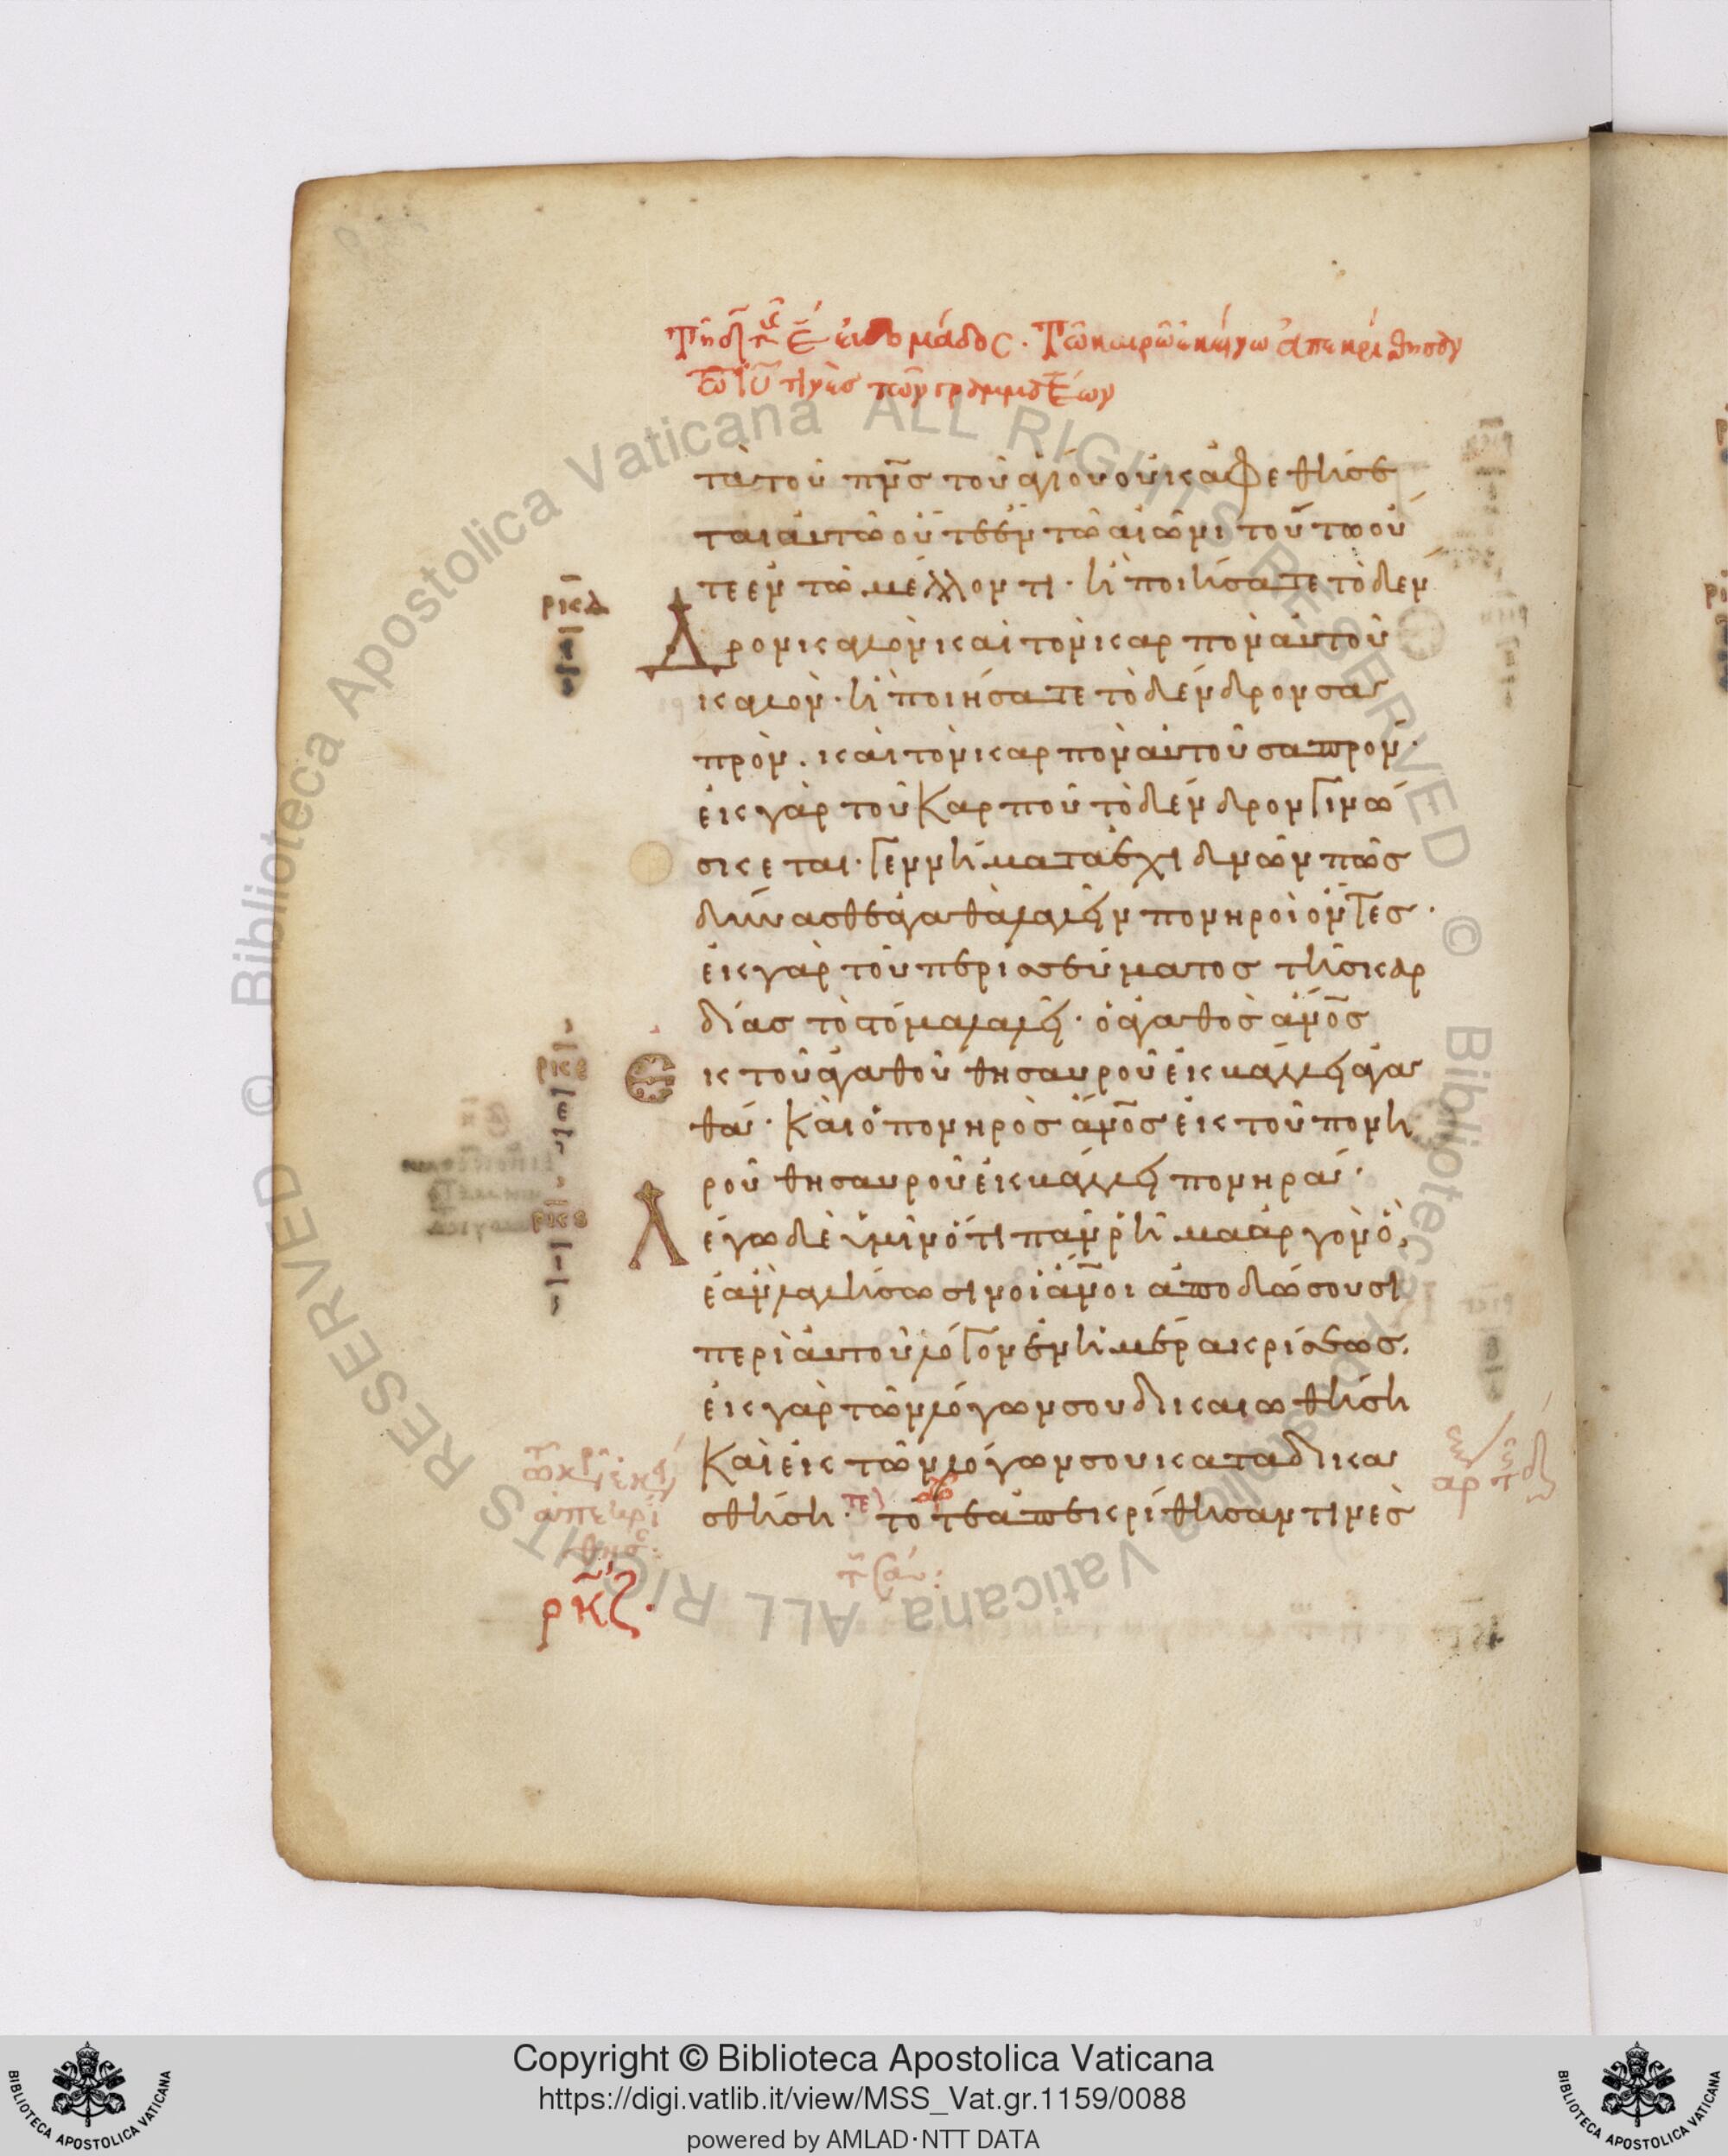 Τῆ δ τῆς ε ἑβδομάδος. Τῶ καιρῶ ἐκείνω ἀπεκρίθησαν
τῶ ἰῦ τινὲς τῶν γραμματέων
τὰ τοῦ πνσ τοῦ ἁγίου οὐκ ἀφεθήσε
ται αυτῶ οὔτε ἐν τῶ αἰῶνι τούτω οὔ
τε ἐν τῶ μέλλοντι· ἢ ποιήσατε τὸ δέν
ρκδ
δρον καλὸν καὶ τὸν καρπὸν αυτοῦ
καλόν· ἢ ποιήσατε τὸ δένδρον σα
πρὸν. καὶ τὸν καρπὸν αυτοῦ σαπρόν·
ἐκ γὰρ τοῦ Καρποῦ τὸ δένδρον γινώ
σκεται· γεννήματα ἐχιδνῶν πῶσ
δύνασθε ἀγαθὰ λαλεῖν πονηροὶ ὄντεσ·
ἐκ γὰρ τοῦ περισσεύματοσ τῆσ καρ
δίασ τὸ στόμα λαλεῖ· ὁ ἀγαθὸσ ἄνοσ
ρκε
ἐκ τοῦ ἀγαθοῦ θησαυροῦ ἐκβάλλει ἀγα
θά· Καὶ ὁ πονηρὸσ ἄνοσ ἐκ τοῦ πονη
ροῦ θησαυροῦ ἐκβάλλει πονηρά·
ρκς
Λέγω δὲ ὑμῖν ὅτι πᾶν ῥῆμα ἀργὸν ὃ
ἐὰν λαλήσωσιν οἱ ἄνοι ἀποδώσουσι
περὶ αυτοῦ λόγον ἐν ἡμέρα κρίσεωσ.
ἐκ γὰρ τῶν λόγων σου δικαιωθήση
Καὶ ἐκ τῶν λόγων σου καταδικα
σθήση· τότε ἀπεκρίθησαν τινὲσ
ἀπεκρί
θησ
ρκζ·